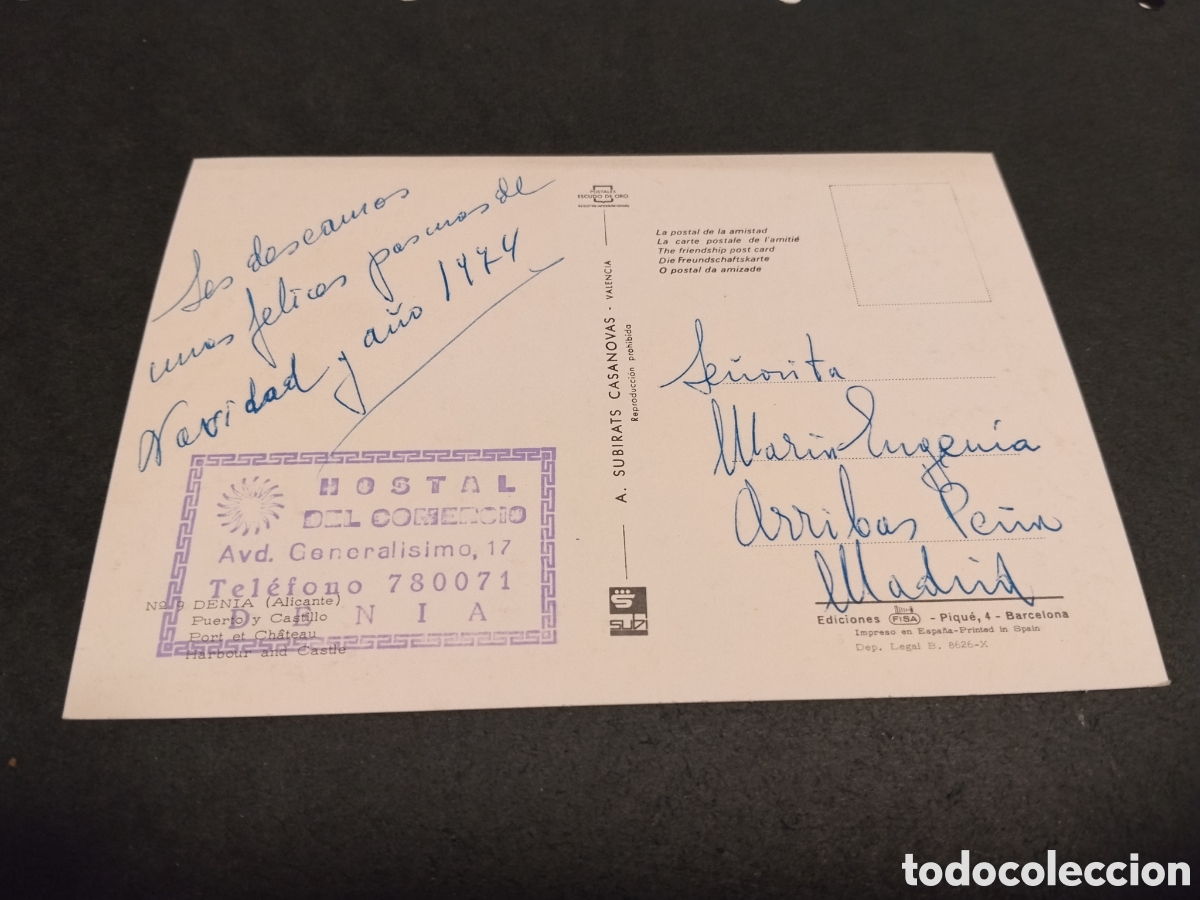 Les deseamos
unas felices pascuas de
Navidad y año 1974
HOSTAL
DEL COMERCIO
Avd. Generalisimo, 17
Teléfono 780071
DENIA
Nº 9 DENIA (Alicante)
Puerto y Castillo
Port et Château
Harbour and Castle
POSTALES
ESCUDO DE ORO
A. SUBIRATS CASANOVAS - VALENCIA
Reproducción prohibida
SUBI
La postal de la amistad
La carte postale de l'amitié
The friendship post card
Die Freundschaftskarte
O postal da amizade
Señorita
Maria Eugenia
Arribas Peña
Madrid
Ediciones FISA - Piqué, 4 - Barcelona
Impreso en España-Printed in Spain
Dep. Legal B. 8626-X
todocoleccion